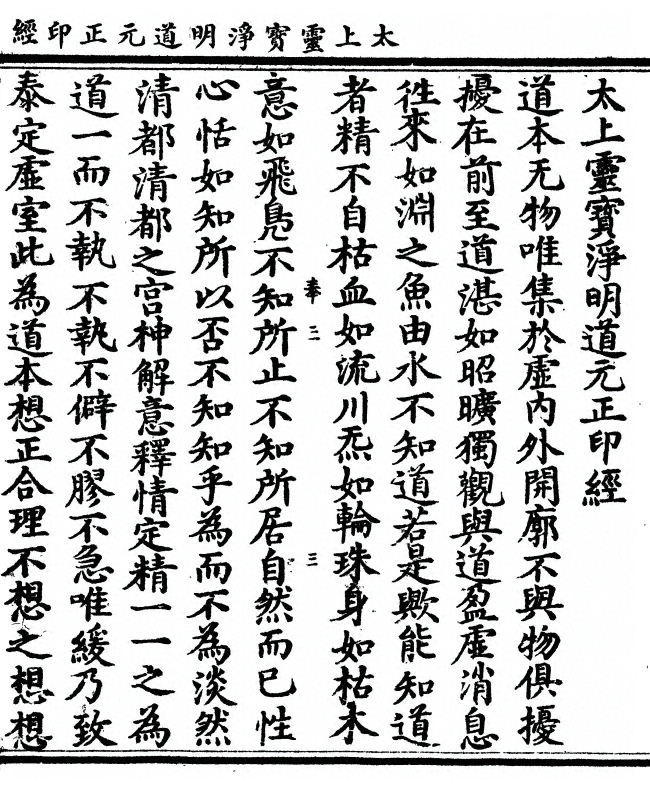 太上靈寳淨明道元正印經
太上靈寳淨明道元正印經
道本无物唯集於虛内外開廓不與物俱擾
擾在前至道湛如昭曠獨觀與道盈虛消息
徃來如淵之魚由水不知道若是歟能知道
者精不自枯血如流川炁如輪珠身如枯木
奉三
三
意如飛鳬不知所止不知所居自然而已性
心恬如知所以否不知知乎為而不為淡然
清都清都之宫神解意釋情定精一一之為
道一而不執不執不僻不膠不急唯緩乃致
泰定虛室此為道本想正合理不想之想想